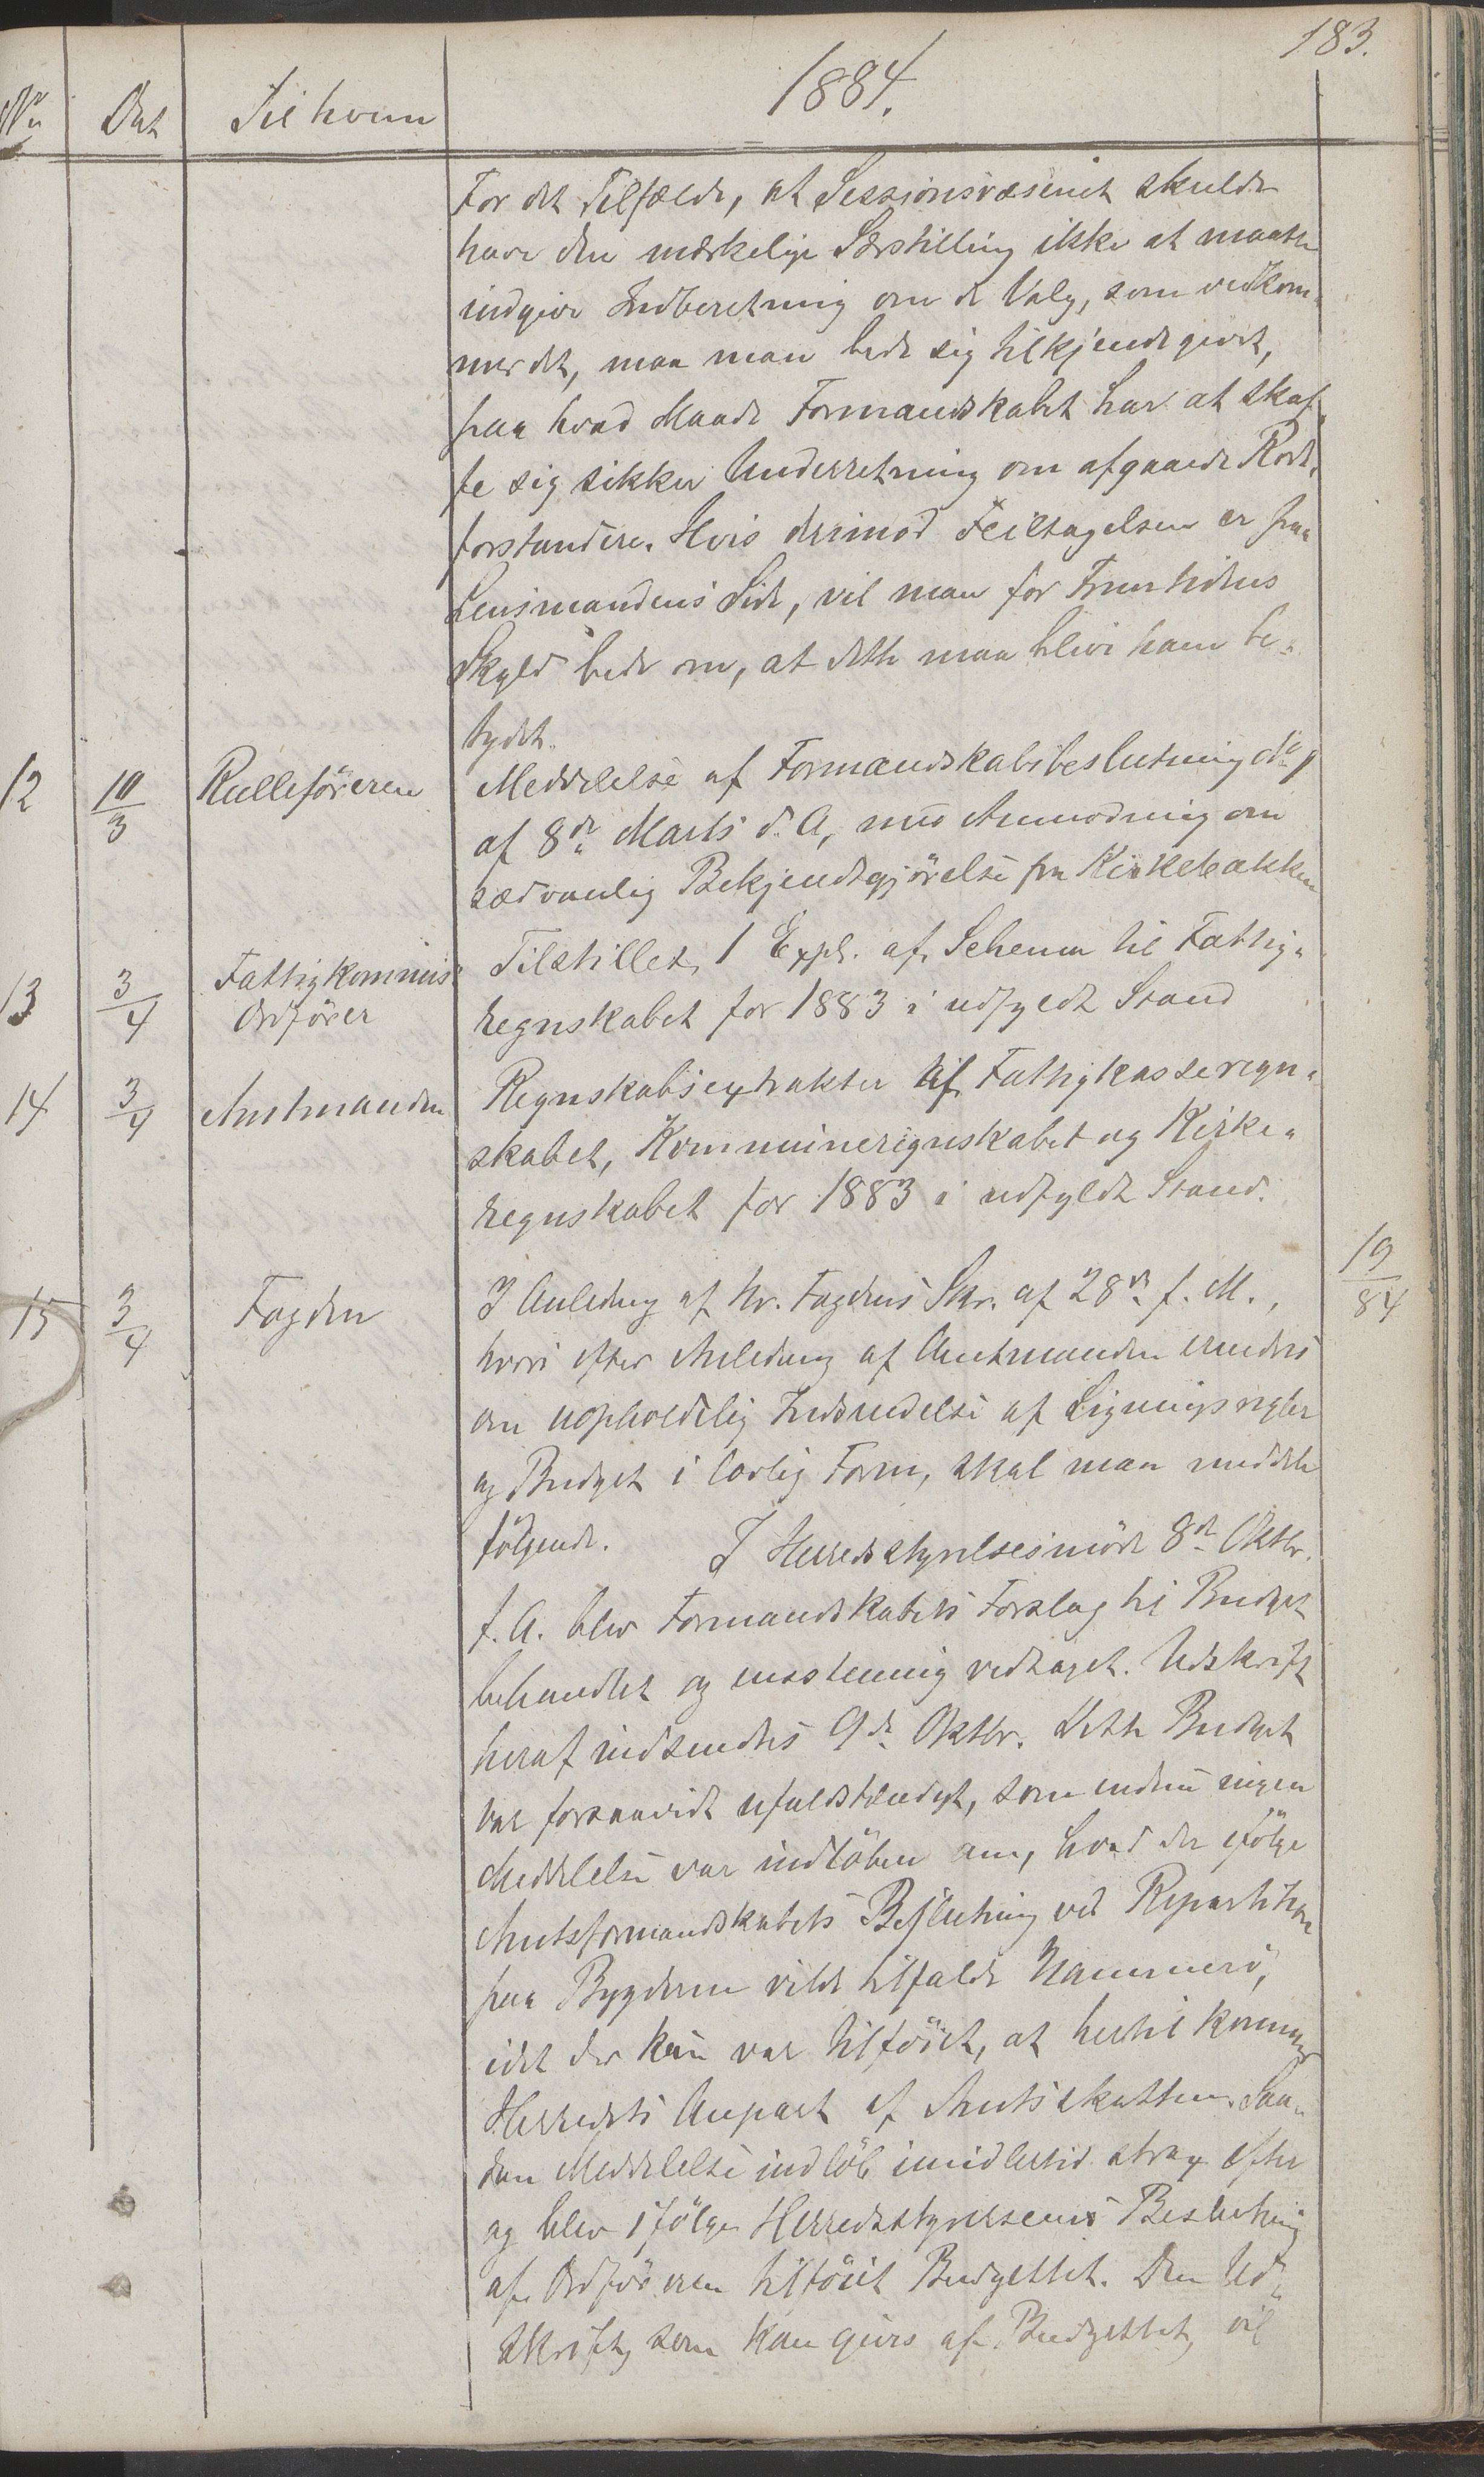 183.
1884.
No Dat Til hvem
For det Tilfælde, at Sessionsvæsenet skulde
have den mærkelige Særstilling ikke at maatte
indgive Indberetning om de Valg, som vedkom„
mer det, maa man bede sig tilkjendegivet,
paa hvad Maade Formandskabet har at skaf„
fe sig sikker Underretning om afgaaede Rode„
forstandere. Hvis derimod Feiltagelsen er paa
Lensmandens Side, vil man for Fremtidens
Skyld bede om, at dette maa blive ham be„
tydet.
12 10/3 Rulleføreren Meddelelse af Formandskabsbeslutning No 1
af 8de Marts d. A, med Anmodning om
sædvanlig Bekjendtgjørelse fra Kirkebakken
13 3/4 Fattigkommis Tilstillet, 1 Expl. af Schema til Fattig„
Ordfører regnskabet for 1883 i udfyldt Stand
14 3/4 Amtmanden Regnskabsextrakter af Fattigkasseregn„
skabet, Kommuneregnskabet og Kirke„
regnskabet for 1883 i udfyldt Stand.
15 3/4 Fogden I Anledng af Hr. Fogdens Skr. af 28de f. M., 19/84
hvori efter Anledng af Amtmanden erindres
om uopholdelig Indsendelse af Ligningsregler
og Budget i lovlig Form, skal man meddele
følgende. I Herredsstyrelsesmøde 8de Oktbr.
f. A. blev Formandskabets Forslag til Budget
behandlet og enstemmig vedtaget. Udskrift
heraf indsendtes 9de Oktbr. Dette Budget
var forsaavidt ufuldstændigt, som endnu ingen
Meddelelse var indløben om, hvad der ifølge
Amtsformandskabets Beslutning ved Repartition
paa Bygderne vilde tilfalde Hammerø,
idet der kun var tilføiet, at hertil kommer
Herredets Anpart af Amtsskatten. Saa„
dan Meddelelse indløb imidlertid strax efter
og blev ifølge Herredsstyrelsens Beslutning
af Ordføreren tilføiet Budgettet. Den Ud„
skrift, som kan gives af Budgettet, vil